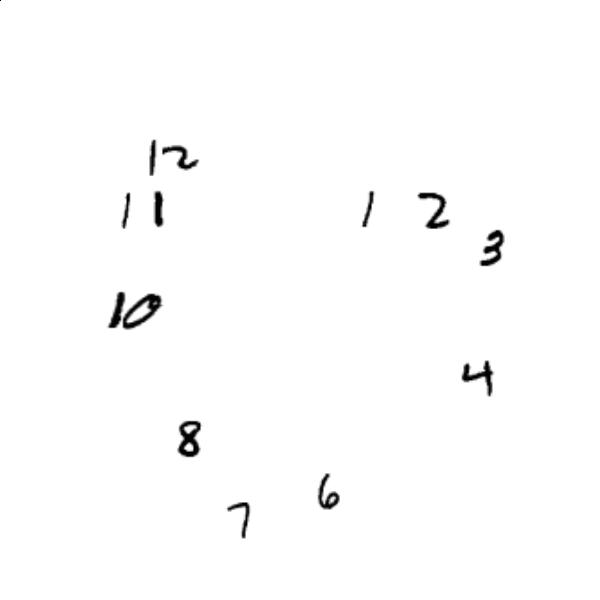 12
11 1 2
3
10
4
8
6
7